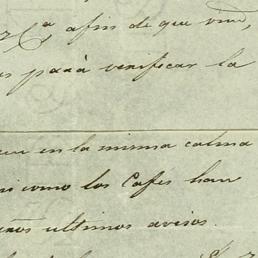 y Cª afin de que vmd,
s para verificar la
en la misma calma
ni como los Cafes han
ultimos avisos.